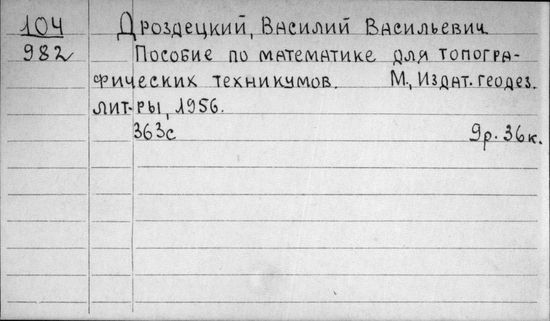 104 Дроздецкий, Василий Васильевич
982 Пособие по математике для топогра-
фических техникумов. М, Издат. геодез.
лит-ры, 1956.
363с 9р. 36к.